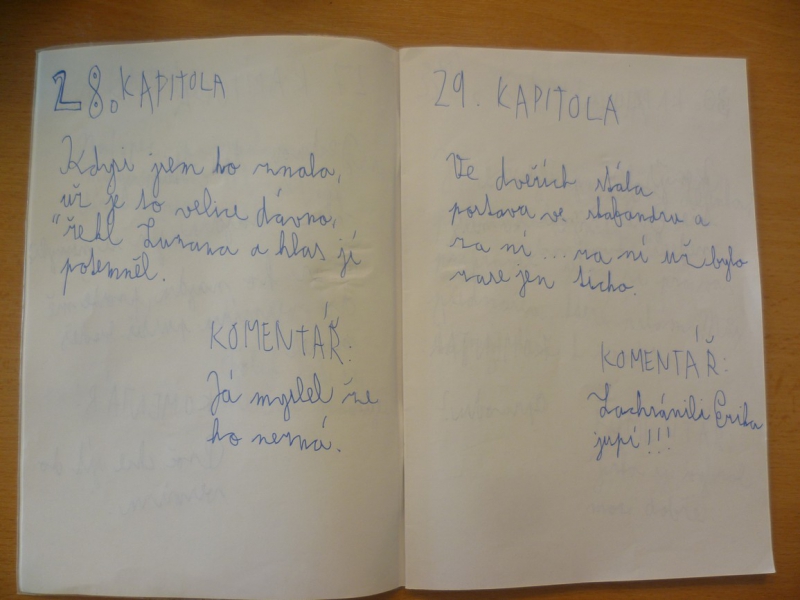 28. KAPITOLA
Kdysi jsem ho znala,
už je to velice dávno,
"řekl Zuzana a hlas jí
potemněl.
KOMENTÁŘ:
Já myslel že
ho nezná.
29. KAPITOLA
Ve dveřích stála
postava ve skafandru a
za ní ... za ní už bylo
zase jen ticho.
KOMENTÁŘ:
Zachránili Erika
jupí!!!